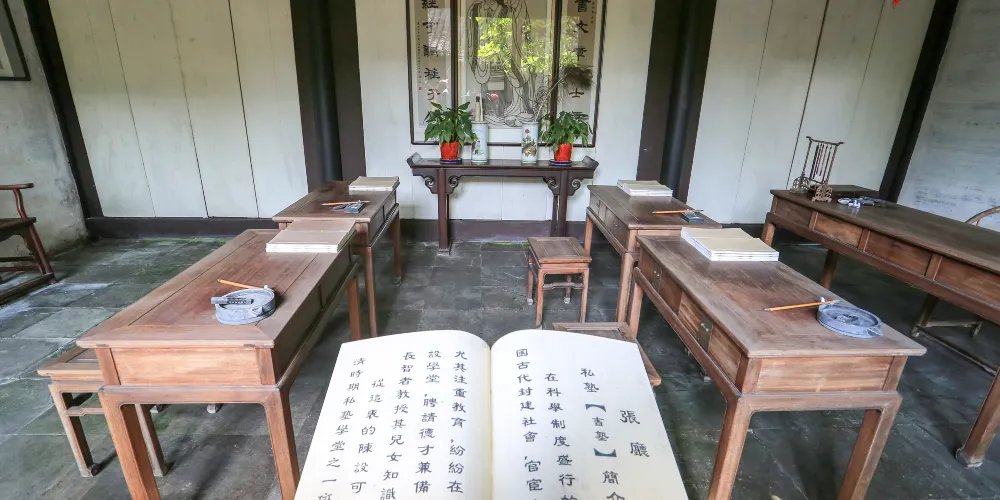 張廳
私塾【吉塾】簡介
在科舉制度盛行的
國古代封建社會,官宦
尤其注重教育,紛紛在
設學堂,聘請德才兼備
長智者教授其兒女知識
從這裏的陳設可
清時期私塾學堂之一斑